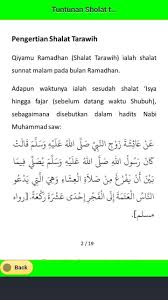 Tuntunan Sholat t...
Pengertian Shalat Tarawih
Qiyamu Ramadhan (Shalat Tarawih) ialah shalat
sunnat malam pada bulan Ramadhan.
Adapun waktunya ialah sesudah shalat 'Isya
hingga fajar (sebelum datang waktu Shubuh),
sebagaimana disebutkan dalam hadits Nabi
Muhammad saw:
عَنْ عَائِشَةَ زَوْجِ النَّبِيِّ صَلَّى اللهُ عَلَيْهِ وَسَلَّمَ قَالَتْ
كَانَ رَسُولُ اللهِ صَلَّى اللهُ عَلَيْهِ وَسَلَّمَ يُصَلِّي فِيمَا
بَيْنَ أَنْ يَفْرُغَ مِنْ صَلَاةِ الْعِشَاءِ وَهِيَ الَّتِي يَدْعُو
النَّاسُ الْعَتَمَةَ إِلَى الْفَجْرِ إِحْدَى عَشْرَةَ رَكْعَةً. [رواه
مسلم].
2 / 19
Back